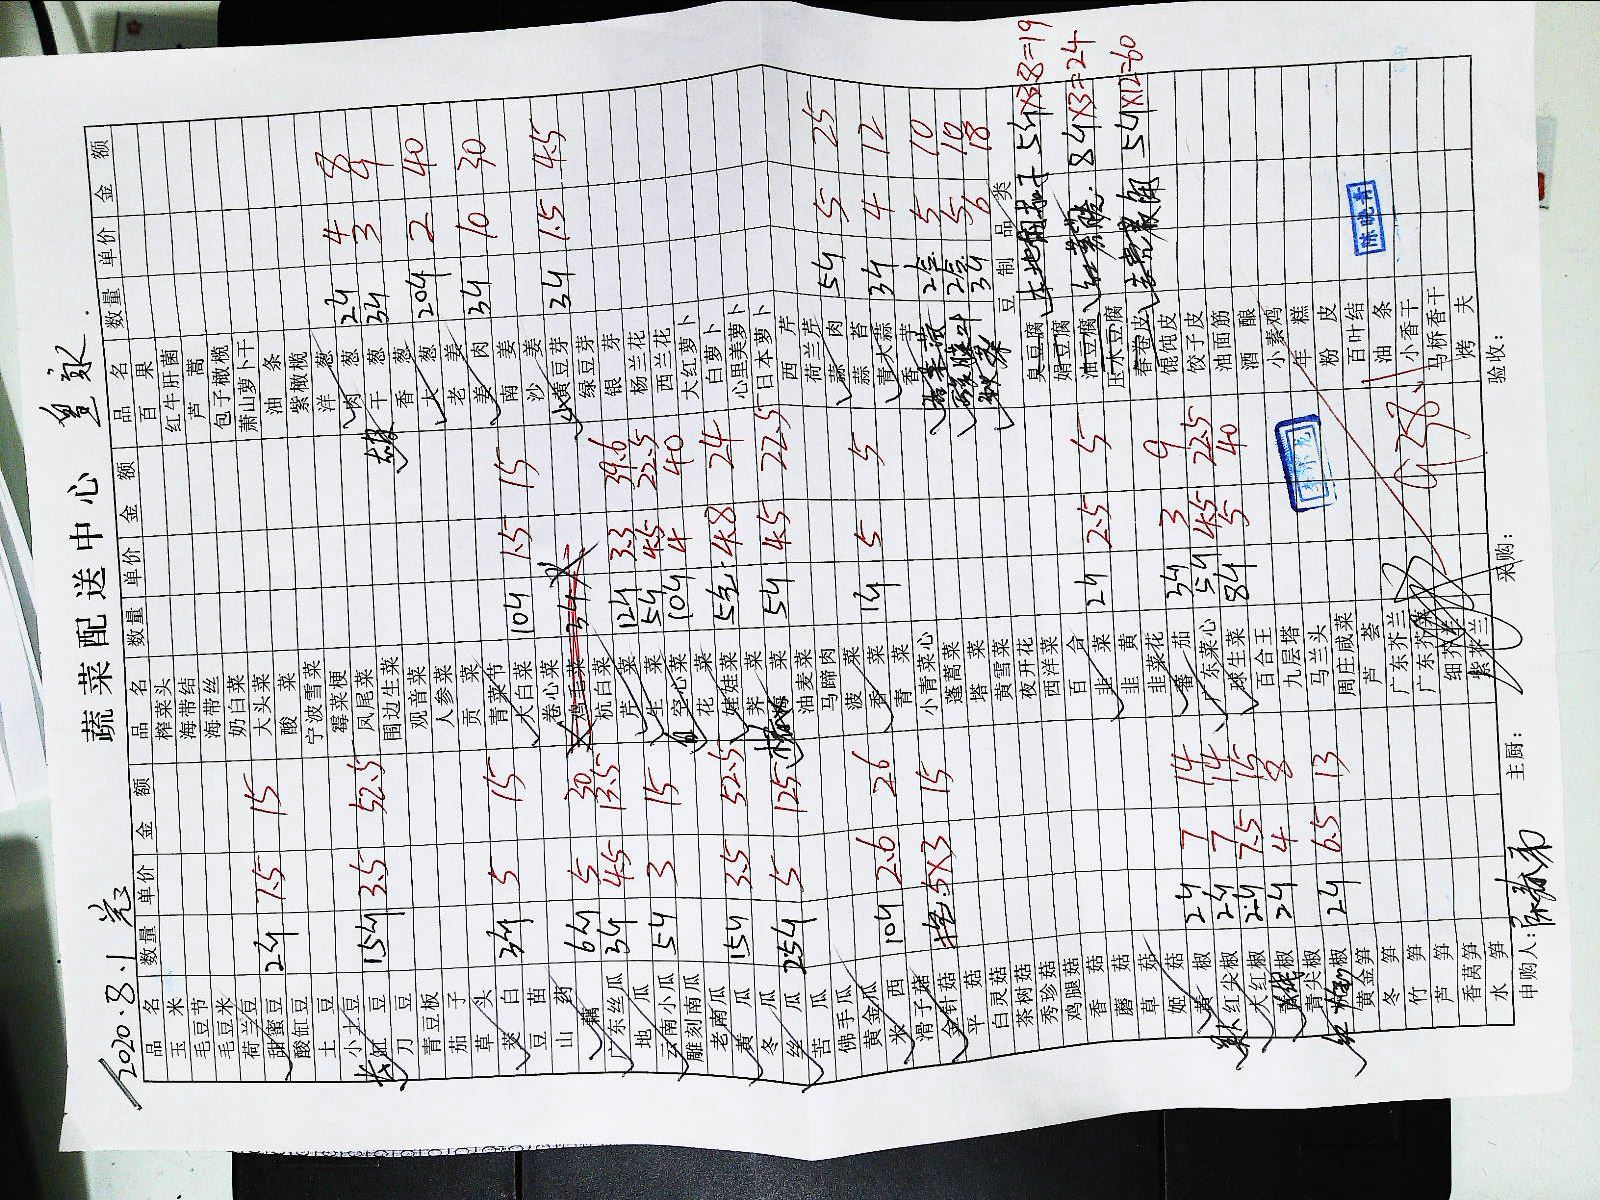 蔬菜配送中心
2020.8.1
品名 数量 单价 金额 品名 数量 单价 金额 品名 数量 单价 金额
玉米 榨菜头 百果
毛豆节 海带结 红牛肝菌
毛豆米 海带丝 芦蒿
荷兰豆 奶白菜 包子橄榄
甜蜜豆 2斤 7.5 15 大头菜 萧山萝卜干
酸豇豆 酸菜 油条
土豆 宁波雪菜 紫橄榄
小土豆 霉菜梗 洋葱 2斤 4 8
长豇豆 15斤 3.5 52.5 凤尾菜 肉葱 3斤 3 9
刀豆 围边生菜 干葱
青豆板 观音菜 香葱 20斤 2 40
茄子 人参菜 大葱
草头 贡菜 老姜 3斤 10 30
茭白 3斤 5 15 青菜节 姜肉
豆苗 大白菜 10斤 1.5 15 南姜
山药 卷心菜 沙姜
藕 6斤 5 30 鸡毛菜 3斤 小黄豆芽 3斤 1.5 4.5
广东丝瓜 3斤 4.5 13.5 杭白菜 绿豆芽
地瓜 芹菜 12斤 3.3 39.6 银芽
云南小瓜 5斤 3 15 生菜 5斤 4.5 22.5 杨兰花
雕刻南瓜 空心菜 10斤 4 40 西兰花
老南瓜 花菜 大红萝卜
黄瓜 15斤 3.5 52.5 娃娃菜 5包 4.8 24 白萝卜
冬瓜 荠菜 心里美萝卜
丝瓜 25斤 5 125 5斤 4.5 22.5 日本萝卜
苦瓜 油麦菜 西芹
佛手瓜 马蹄肉 荷兰芹
黄金瓜 菠菜 蒜肉 5斤 5 25
米西 10斤 2.6 26 香菜 1斤 5 5 蒜苔
滑子菇 青菜 青大蒜 3斤 4 12
金针菇 5×3 15 小青菜心 香芋
平菇 蓬蒿菜 2盒 5 10
白灵菇 塔菜 2盒 5 10
茶树菇 黄雪菜 3斤 6 18
秀珍菇 夜开花 豆制品类
鸡腿菇 西洋菜 臭豆腐 5斤×3.8=19
香菇 百合 娟豆腐
蘑菇 韭菜 2斤 2.5 5 油豆腐 8斤×3=24
草菇 韭黄 压水豆腐
姬菇 韭菜花 春卷皮 5斤×12=60
黄椒 2斤 7 14 番茄 3斤 3 9 馄饨皮
红尖椒 2斤 7 14 广东菜心 5斤 4.5 22.5 饺子皮
大红椒 2斤 7.5 15 球生菜 8斤 5 40 油面筋
2斤 4 8 百合王 酒酿
青尖椒 九层塔 小素鸡
2斤 6.5 13 马兰头 年糕
黄金笋 周庄咸菜 粉皮
冬笋 芦荟 百叶结
竹笋 广东芥兰 油条
芦笋 广东芥菜 小香干
香莴笋 细芥兰 马桥香干
水笋 紫芥兰 烤夫
申购人： 主厨： 采购： 验收：
陈晓青